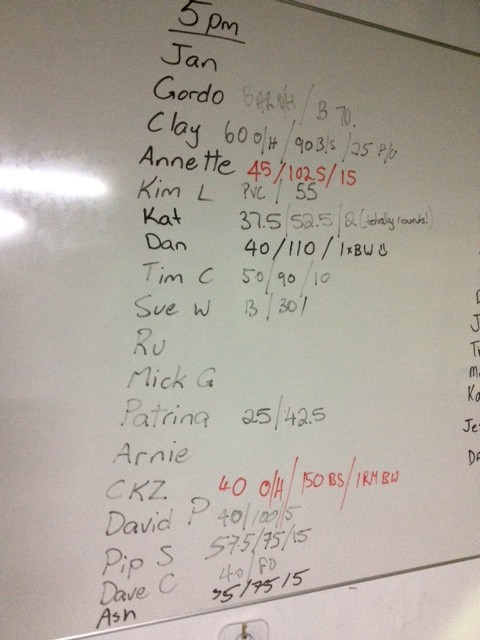 5pm
Jan
Gordo / B 70.
Clay 60 O/H / 90 B/S / 25 P/U
Annette 45/102.5/15
Kim L PVC / 55
Kat 37.5/52.5/2 (totally rounds!)
Dan 40/110/1xBW
Tim C 50/90/10
Sue W 13/30/
Ru
Mick G
Patrina 25/42.5
Arnie
CKZ 40 O/H/150 BS/1RM BW
David P 40/100/5
Pip S 57.5/75/15
Dave C 40/80
Ash /75/15
J
Je